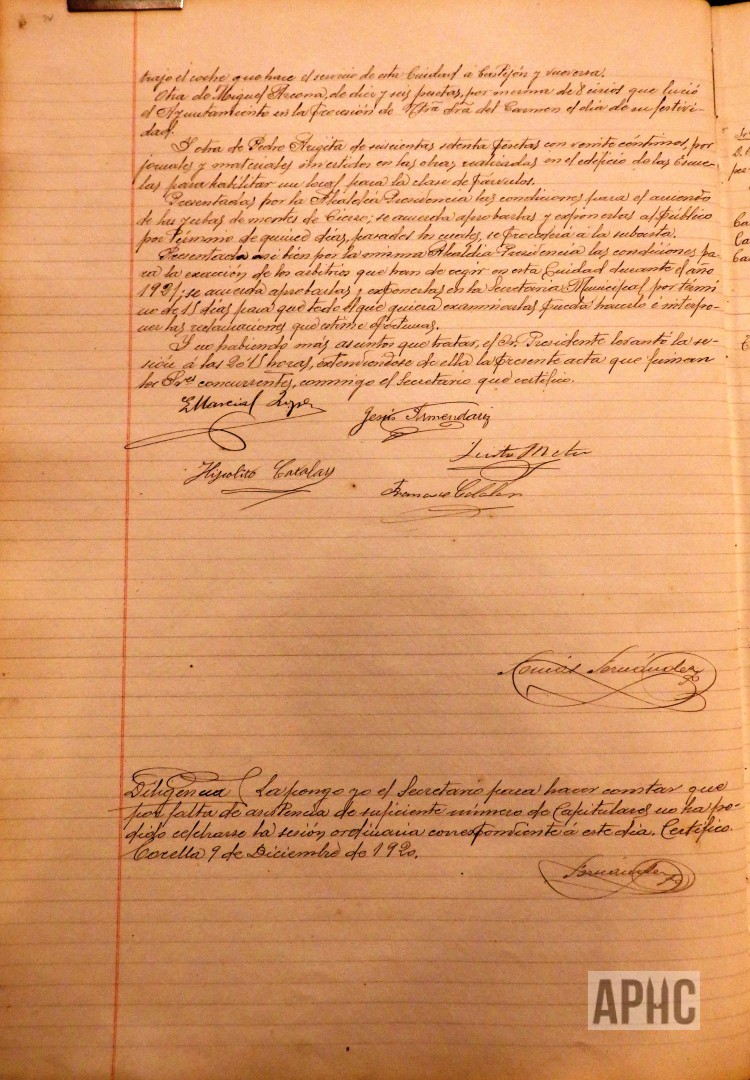 trajo el coche que hace el servicio de esta Ciudad á Castejón y viceversa.
Otra de Miguel Arcona, de diez y seis pesetas, por merma de 8 cirios que lució
el Ayuntamiento en la Procesión de Ntrª Srª del Carmen el día de su festivi-
dad.
Y otra de Pedro Angita de seiscientas setenta pesetas con veinte céntimos, por
jornales y materiales invertidos en las obras realizadas en el edificio de las Escue-
las para habilitar un local para la clase de Párvulos.
Presentadas por la Alcaldía Presidencia las condiciones para el arriendo
de las yerbas de montes de Cierzo; se acuerda aprobarlas y exponerlas al público
por término de quince días, pasados los cuales, se procederá á la subasta.
Presentadas así bien por la misma Alcaldía Presidencia las condiciones pa-
ra la exacción de los arbitrios que han de regir en esta Ciudad durante el año
1921; se acuerda aprobarlas y exponerlas en la Secretaría Municipal por térmi
no de 15 días para que todo el que quiera examinarlas pueda hacerlo é interpo-
ner las reclamaciones que estime oportunas.
Y no habiendo más asuntos que tratar, el Sr. Presidente levantó la se-
sión á las 20'15 horas, extendiéndose de ella la presente acta que firman
los Sres concurrentes, conmigo el Secretario que certifico.
Marcial
Jesús Armendariz
Hipolito Catalan
Francisco Catalan
Fernández
Diligencia ( La pongo yo el Secretario para hacer constar que
por falta de asistencia de suficiente número de Capitulares no ha po-
dido celebrarse la sesión ordinaria correspondiente á este día. Certifico.
Corella 9 de Diciembre de 1920.
Fernández
APHC